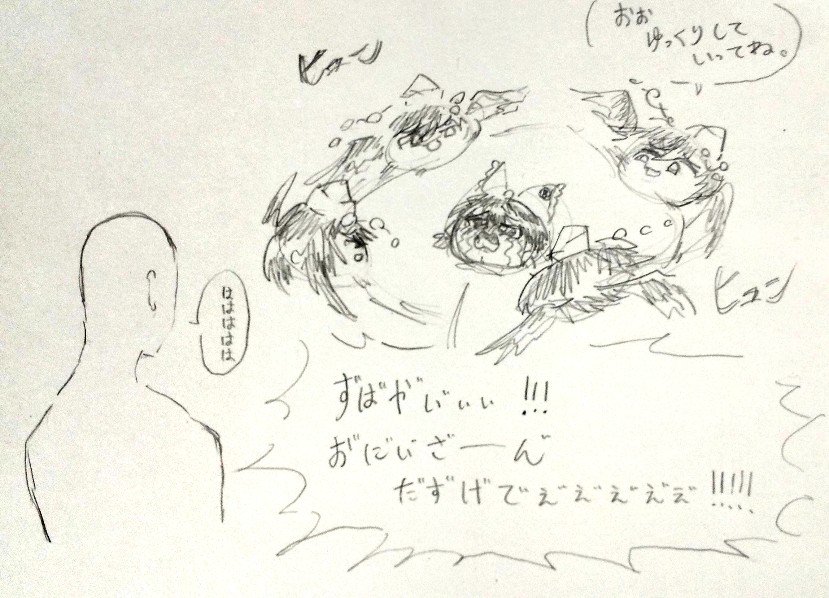 おお
ゆっくりして
いってね。
ヒューン
ヒュン
はははははは
ずばやいぃぃ!!!
おにいざーん
だずげでぇぇぇぇぇ!!!!!